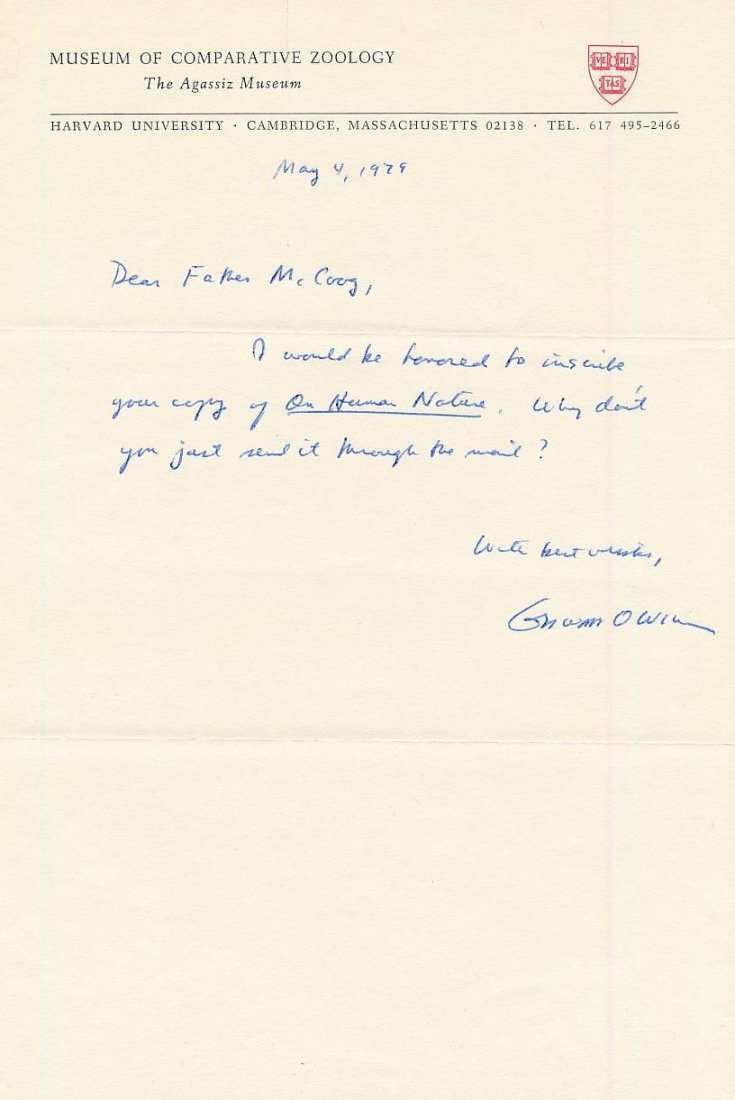 MUSEUM OF COMPARATIVE ZOOLOGY
The Agassiz Museum
VE RI
TAS
HARVARD UNIVERSITY · CAMBRIDGE, MASSACHUSETTS 02138 · TEL. 617 495–2466
May 4, 1979
Dear Father McCoog,
I would be honored to inscribe
your copy of On Human Nature. Why don't
you just send it through the mail?
With best wishes,
Edward O Wilson